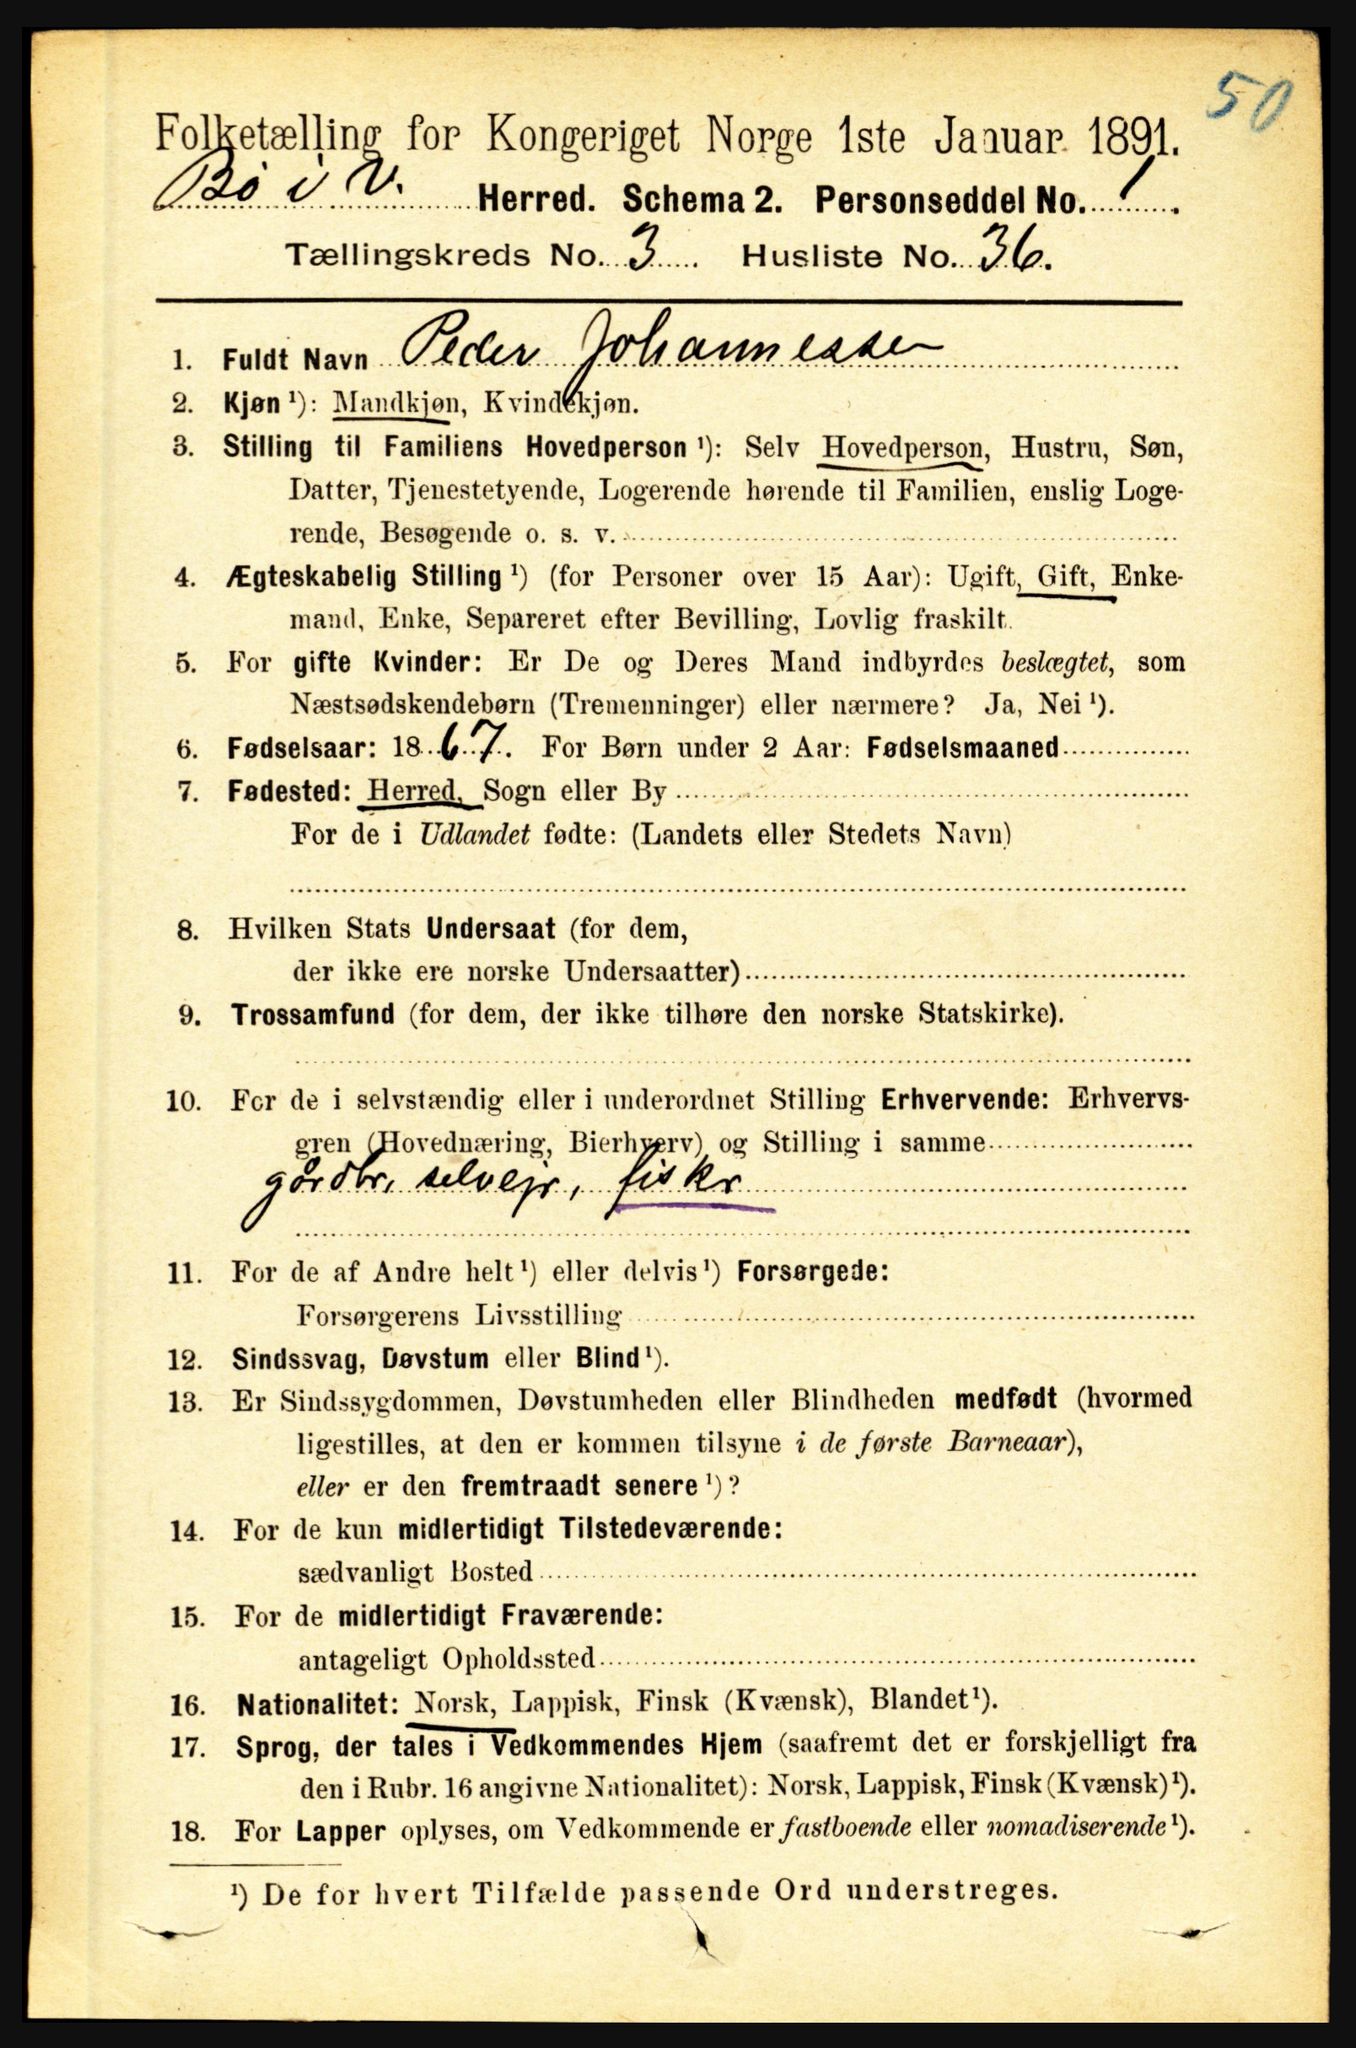 50
Folketælling for Kongeriget Norge 1ste Januar 1891.
Bö i V. Herred. Schema 2. Personseddel No. 1.
Tællingskreds No. 3 Husliste No. 36.
1. Fuldt Navn Peder Johannessen
2. Kjøn ¹): Mandkjøn, Kvindekjøn.
3. Stilling til Familiens Hovedperson ¹): Selv Hovedperson, Hustru, Søn,
Datter, Tjenestetyende, Logerende hørende til Familien, enslig Loge-
rende, Besøgende o. s. v.
4. Ægteskabelig Stilling ¹) (for Personer over 15 Aar): Ugift, Gift, Enke-
mand, Enke, Separeret efter Bevilling, Lovlig fraskilt.
5. For gifte Kvinder: Er De og Deres Mand indbyrdes beslægtet, som
Næstsødskendebørn (Tremenninger) eller nærmere? Ja, Nei ¹).
6. Fødselsaar: 1867. For Børn under 2 Aar: Fødselsmaaned
7. Fødested: Herred, Sogn eller By
For de i Udlandet fødte: (Landets eller Stedets Navn)
8. Hvilken Stats Undersaat (for dem,
der ikke ere norske Undersaatter)
9. Trossamfund (for dem, der ikke tilhøre den norske Statskirke).
10. For de i selvstændig eller i underordnet Stilling Erhvervende: Erhvervs-
gren (Hovednæring, Bierhverv) og Stilling i samme
gårdbr, selvejr, fiskr
11. For de af Andre helt ¹) eller delvis ¹) Forsørgede:
Forsørgerens Livsstilling
12. Sindssvag, Døvstum eller Blind ¹).
13. Er Sindssygdommen, Døvstumheden eller Blindheden medfødt (hvormed
ligestilles, at den er kommen tilsyne i de første Barneaar),
eller er den fremtraadt senere ¹)?
14. For de kun midlertidigt Tilstedeværende:
sædvanligt Bosted
15. For de midlertidigt Fraværende:
antageligt Opholdssted
16. Nationalitet: Norsk, Lappisk, Finsk (Kvænsk), Blandet ¹).
17. Sprog, der tales i Vedkommendes Hjem (saafremt det er forskjelligt fra
den i Rubr. 16 angivne Nationalitet): Norsk, Lappisk, Finsk (Kvænsk) ¹).
18. For Lapper oplyses, om Vedkommende er fastboende eller nomadiserende ¹).
¹) De for hvert Tilfælde passende Ord understreges.